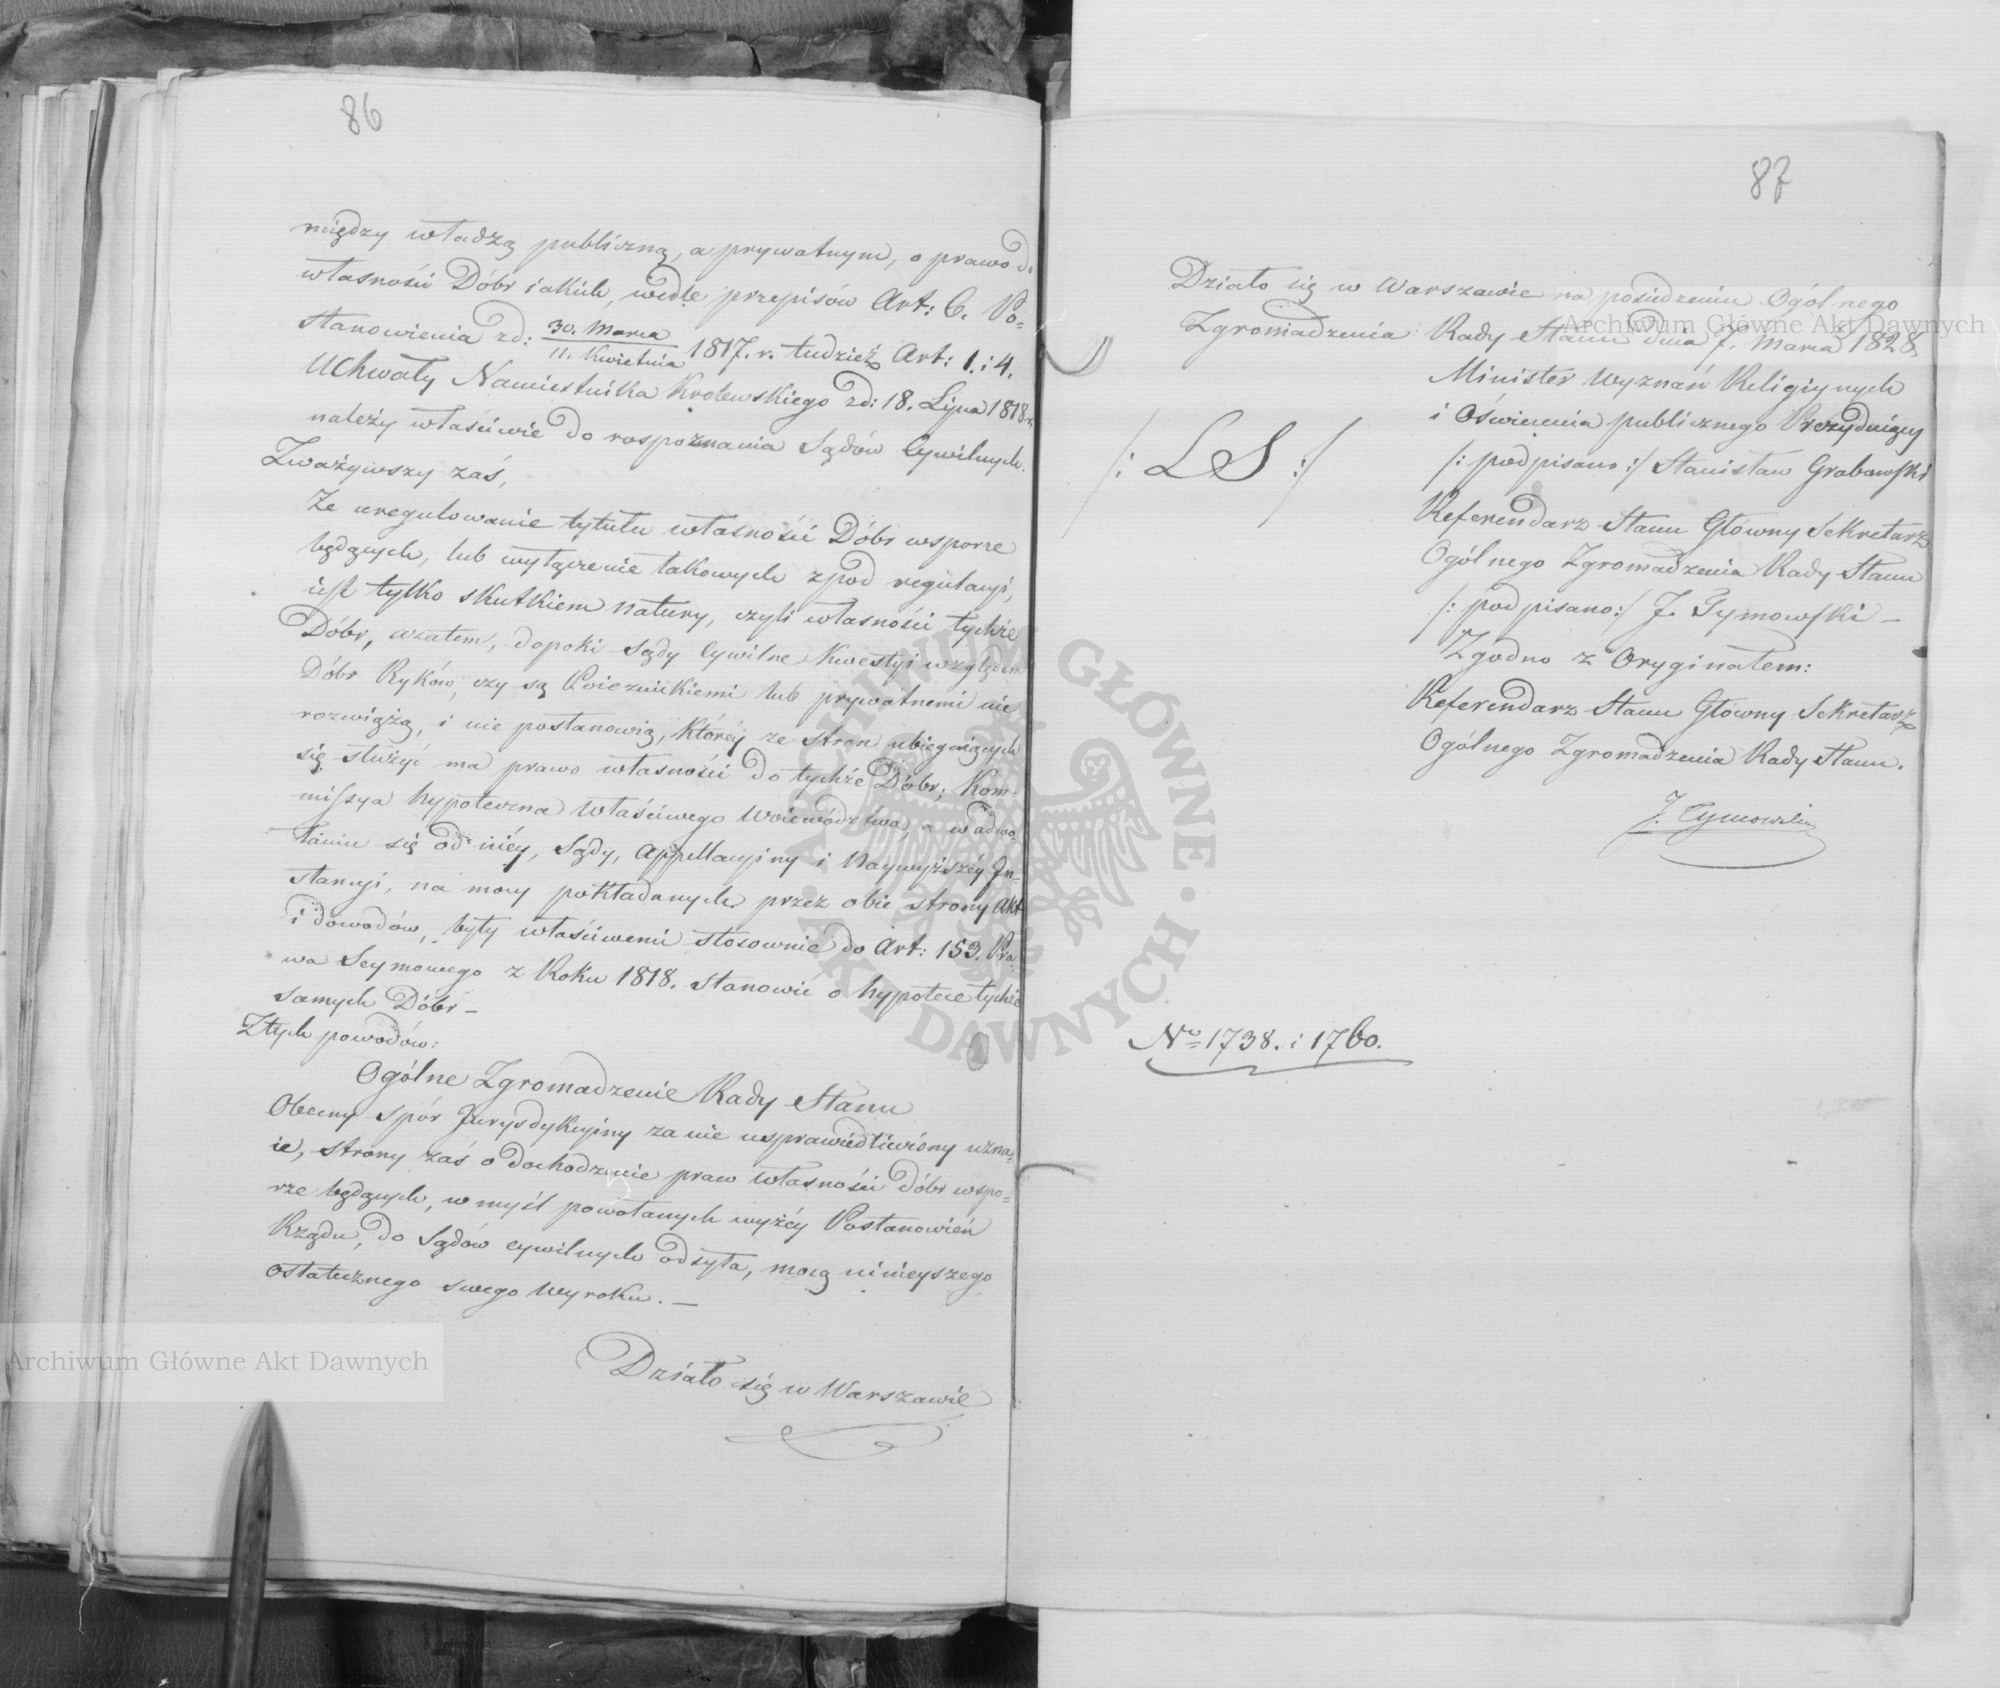 86
między władzą publiczną, a prywatnym, o prawo do
własności Dóbr iakich, wedle przepisów Art: 6. Po=
stanowienia zd: 30. Marca / 11. Kwietnia 1817. r. tudzież Art: 1. i 4.
Uchwały Namiestnika Krolewskiego zd: 18. Lipca 1818 r.
należy właściwie do rospoznania Sądów Cywilnych.
Zważywszy zaś,
Że uregulowanie tytułu własności Dóbr wsporze
będących, lub wyłączenie takowych zpod regulacyi,
iest tylko skutkiem natury, czyli własności tychże
Dóbr, azatem, dopoki Sądy Cywilne Kwestyi względem
Dóbr Ryków, czy są Poiezuickiemi lub prywatnemi nie
rozwiążą, i nie postanowią, któréy ze stron ubiegaiących
się służyć ma prawo własności do tychże Dóbr; Kom=
missya hypoteczna właściwego Woiewództwa, a w odwo=
łaniu się od niéy, Sądy, Appellacyiny i Naywyższéy In=
stancyi, na mocy pokładanych przez obie strony Akt
i dowodów, były właściwemi stosownie do Art: 153. Pra=
wa Seymowego z Roku 1818. stanowić o hypotece tychże
samych Dóbr –
Z tych powodów:
Ogólne Zgromadzenie Rady Stanu
Obecny spór Jurysdykcyiny za nie usprawiedliwiony uzna=
ie, strony zaś o dochodzenie praw własności dóbr wspo=
rze będących, w myśl powołanych wyżéy Postanowień
Rządu, do Sądów cywilnych odsyła, mocą ninieyszego
ostatecznego swego Wyroku. —
Działo się w Warszawie
87
Działo się w Warszawie na posiedzeniu Ogólnego
Zgromadzenia Rady Stanu dnia 7. Marca 1828.
Minister Wyznań Religiynych
i Oświecenia publicznego Prezyduiący
/: podpisano :/ Stanisław Grabowski
/: LS :/
Referendarz Stanu Główny Sekretarz
Ogólnego Zgromadzenia Rady Stanu
/: podpisano :/ J. Tymowski –
Zgodno z Oryginałem:
Referendarz Stanu Główny Sekretarz
Ogólnego Zgromadzenia Rady Stanu.
J. Tymowski
No 1738. i 1760.
Archiwum Główne Akt Dawnych
Archiwum Główne Akt Dawnych
ARCHIWUM GŁÓWNE · AKT DAWNYCH ·